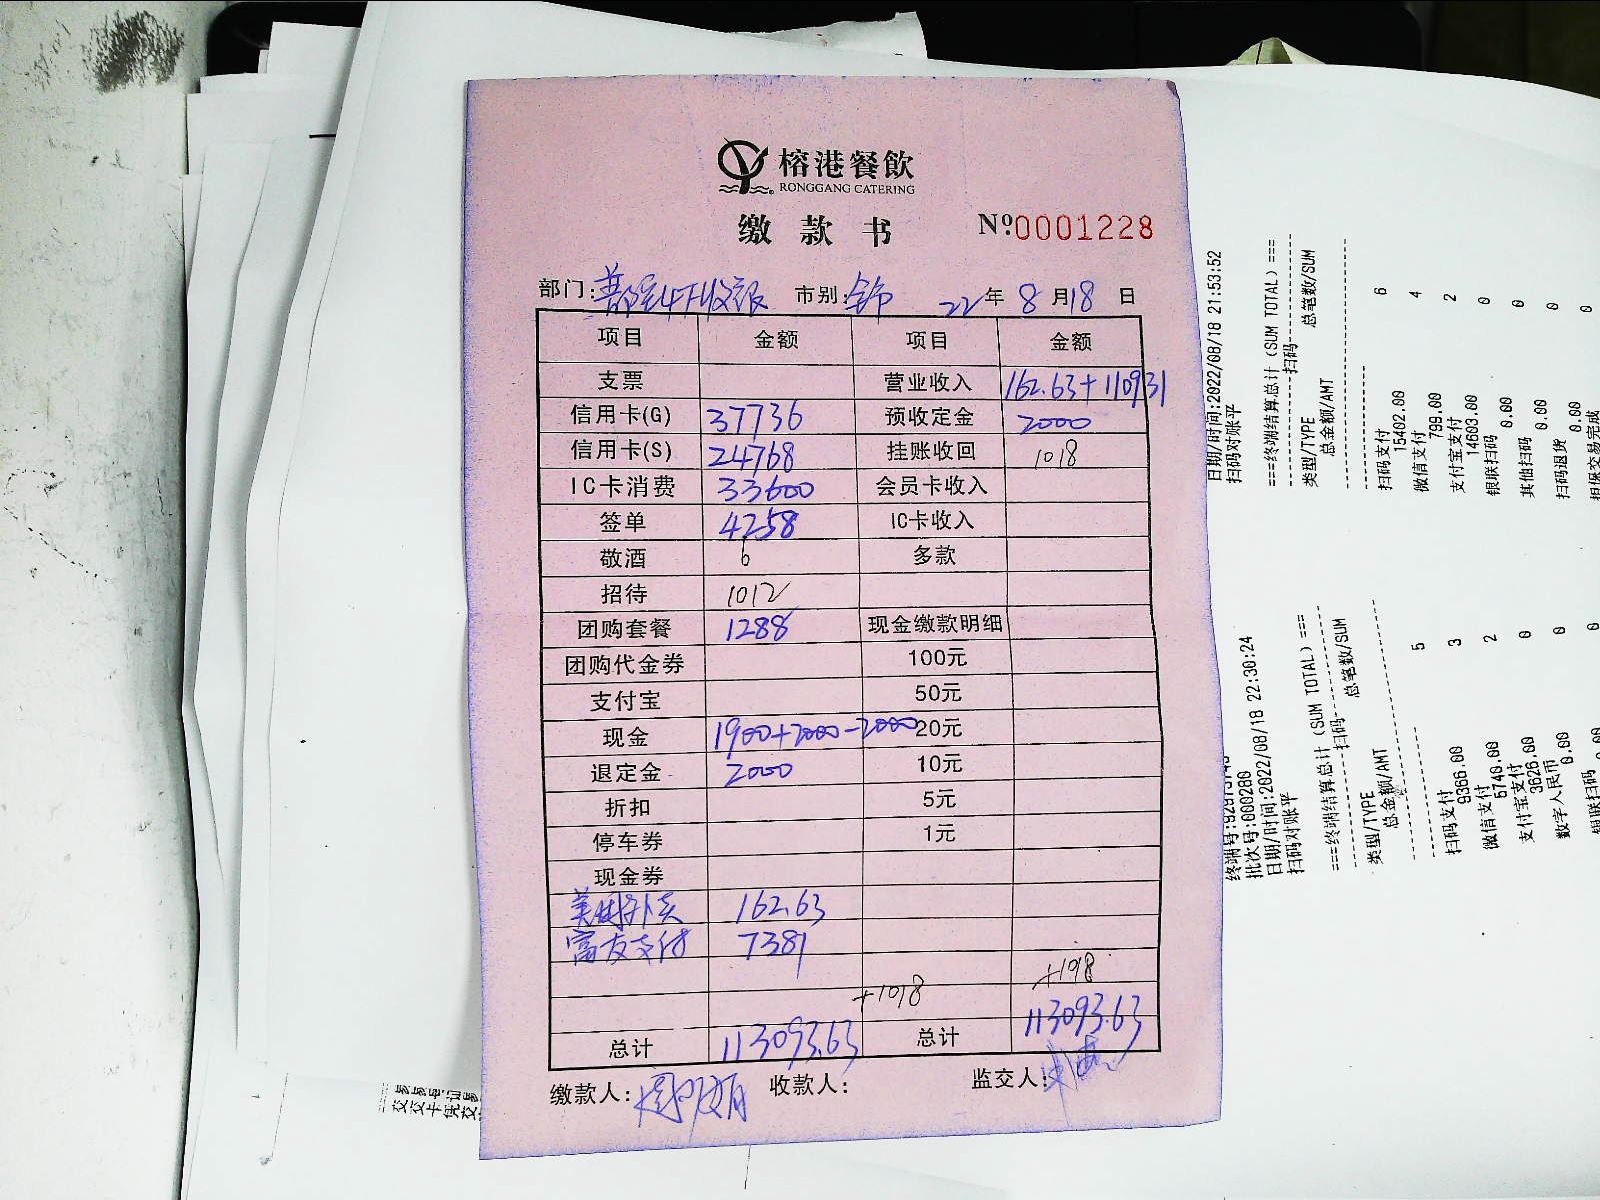 榕港餐飲
RONGGANG CATERING
缴款书 Nº:0001228
部门: 市别:全市 22年8月18日
项目 金额 项目 金额
支票 营业收入 162.63+110931
信用卡(G) 37736 预收定金 2000
信用卡(S) 24768 挂账收回 1018
IC卡消费 33600 会员卡收入
签单 4258 IC卡收入
敬酒 6 多款
招待 1012
团购套餐 1288 现金缴款明细
团购代金券 100元
支付宝 50元
现金 1900+2000-2000 20元
退定金 2000 10元
折扣 5元
停车券 1元
现金券
美团外卖 162.63
富友支付 7381
+1018 +1018
总计 113093.63 总计 113093.63
缴款人: 收款人: 监交人:
日期/时间:2022/08/18 21:53:52
扫码对账平
===终端结算总计(SUM TOTAL)===
----------扫码----------
类型/TYPE 总笔数/SUM
总金额/AMT
扫码支付 6
15402.00
微信支付 4
799.00
支付宝支付 2
14603.00
银联扫码 0
0.00
其他扫码 0
0.00
扫码退货 0
0.00
批次号:000280
日期/时间:2022/08/18 22:30:24
扫码对账平
===终端结算总计(SUM TOTAL)===
----------扫码----------
类型/TYPE 总笔数/SUM
总金额/AMT
扫码支付 5
9366.00
微信支付 3
5740.00
支付宝支付 2
3626.00
数字人民币 0
0.00
银联扫码 0